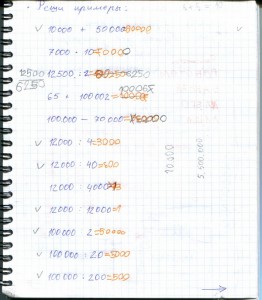 Реши примеры:
✓ 10000 + 50000=60000
7000 · 10=70000
12500 : 2=6250
12500
6250
65 + 100002=
100065
100000 - 70000=
✓ 12000 : 4=3000
✓ 12000 : 40=300
12000 : 4000=3
✓ 12000 : 12000=1
✓ 100000 : 2=50000
✓ 100000 : 20=5000
✓ 100000 : 200=500
10000